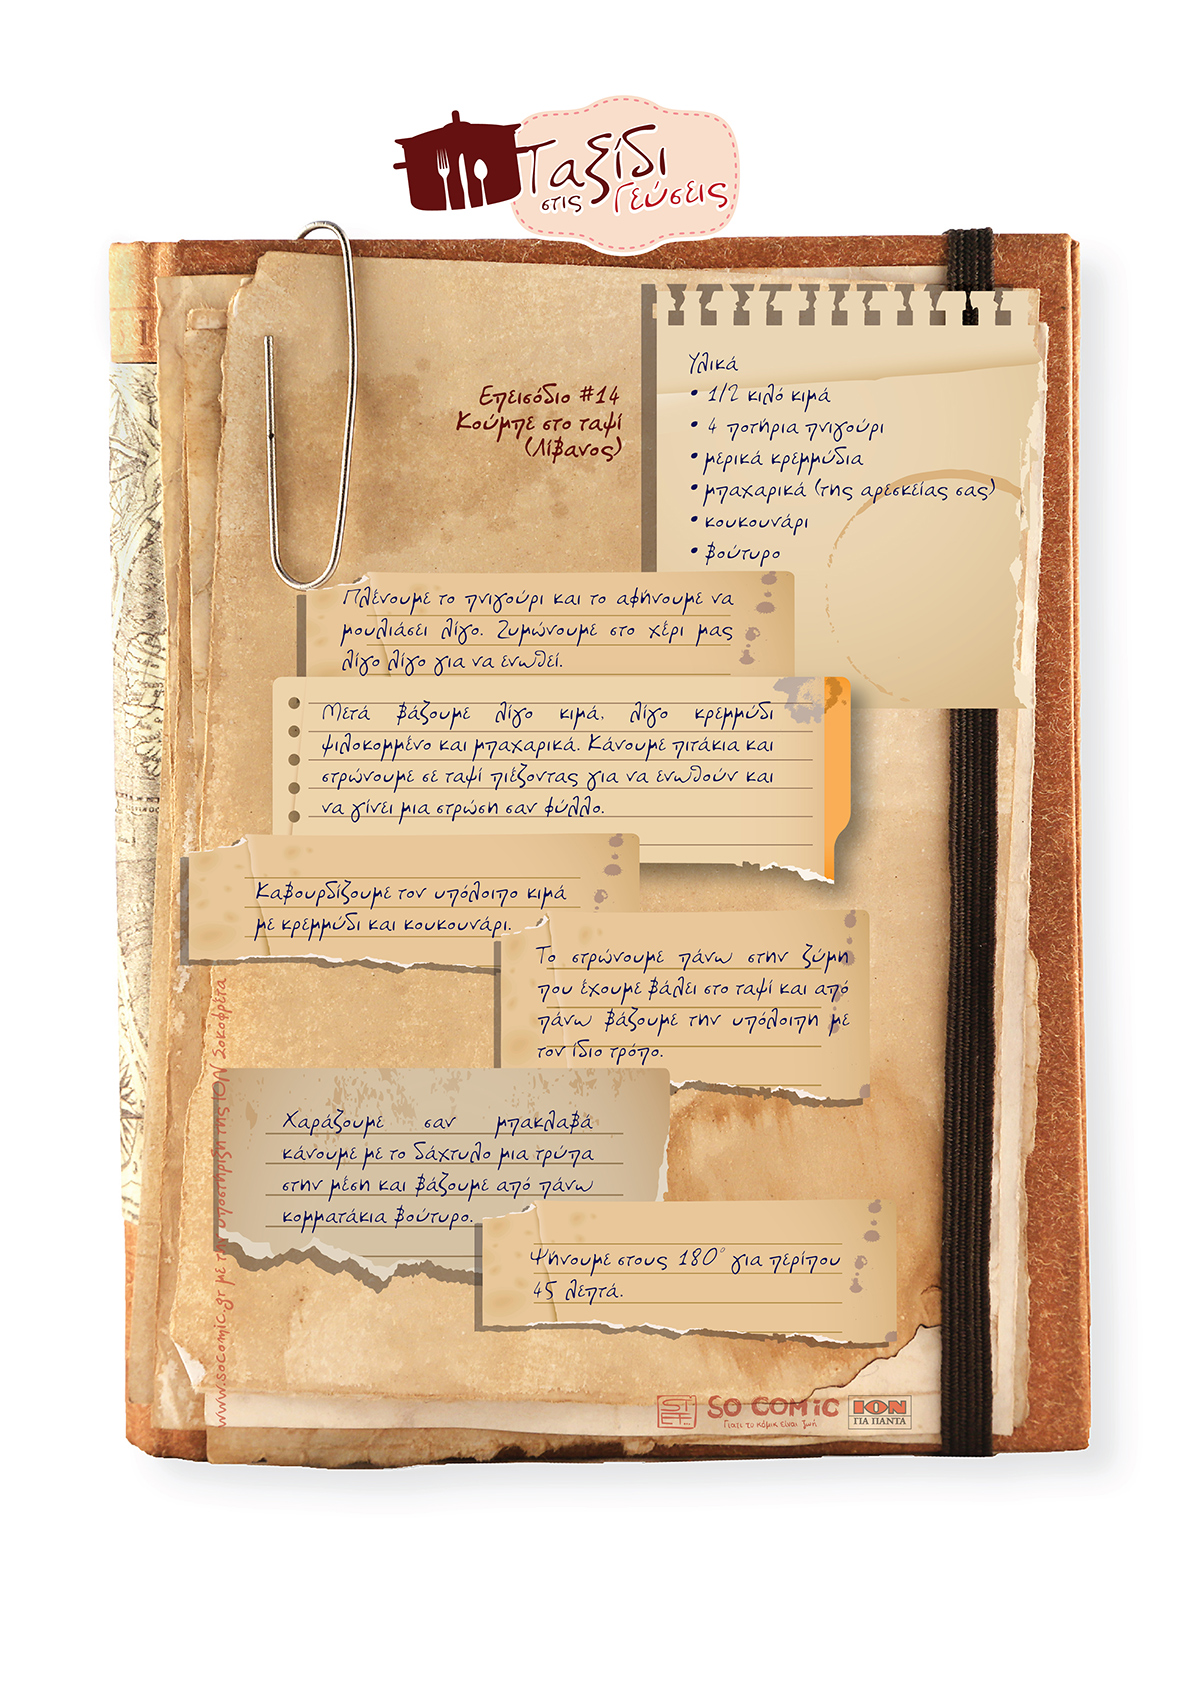 Ταξίδι
στις Γεύσεις
Επεισόδιο #14
Κούμπε στο ταψί
(Λίβανος)
Υλικά
• 1/2 κιλό κιμά
• 4 ποτήρια πνιγούρι
• μερικά κρεμμύδια
• μπαχαρικά (της αρεσκείας σας)
• κουκουνάρι
• βούτυρο
Πλένουμε το πνιγούρι και το αφήνουμε να
μουλιάσει λίγο. Ζυμώνουμε στο χέρι μας
λίγο λίγο για να ενωθεί.
Μετά βάζουμε λίγο κιμά, λίγο κρεμμύδι
ψιλοκομμένο και μπαχαρικά. Κάνουμε πιτάκια και
στρώνουμε σε ταψί πιέζοντας για να ενωθούν και
να γίνει μια στρώση σαν φύλλο.
Καβουρδίζουμε τον υπόλοιπο κιμά
με κρεμμύδι και κουκουνάρι.
Το στρώνουμε πάνω στην ζύμη
που έχουμε βάλει στο ταψί και από
πάνω βάζουμε την υπόλοιπη με
τον ίδιο τρόπο.
Χαράζουμε σαν μπακλαβά
κάνουμε με το δάχτυλο μια τρύπα
στην μέση και βάζουμε από πάνω
κομματάκια βούτυρο.
Ψήνουμε στους 180° για περίπου
45 λεπτά.
www.soComic.gr με την υποστήριξη της ΙΟΝ Σοκοφρέτα
SO COMIC
Γιατί το κόμικ είναι ζωή
ΙΟΝ
ΓΙΑ ΠΑΝΤΑ